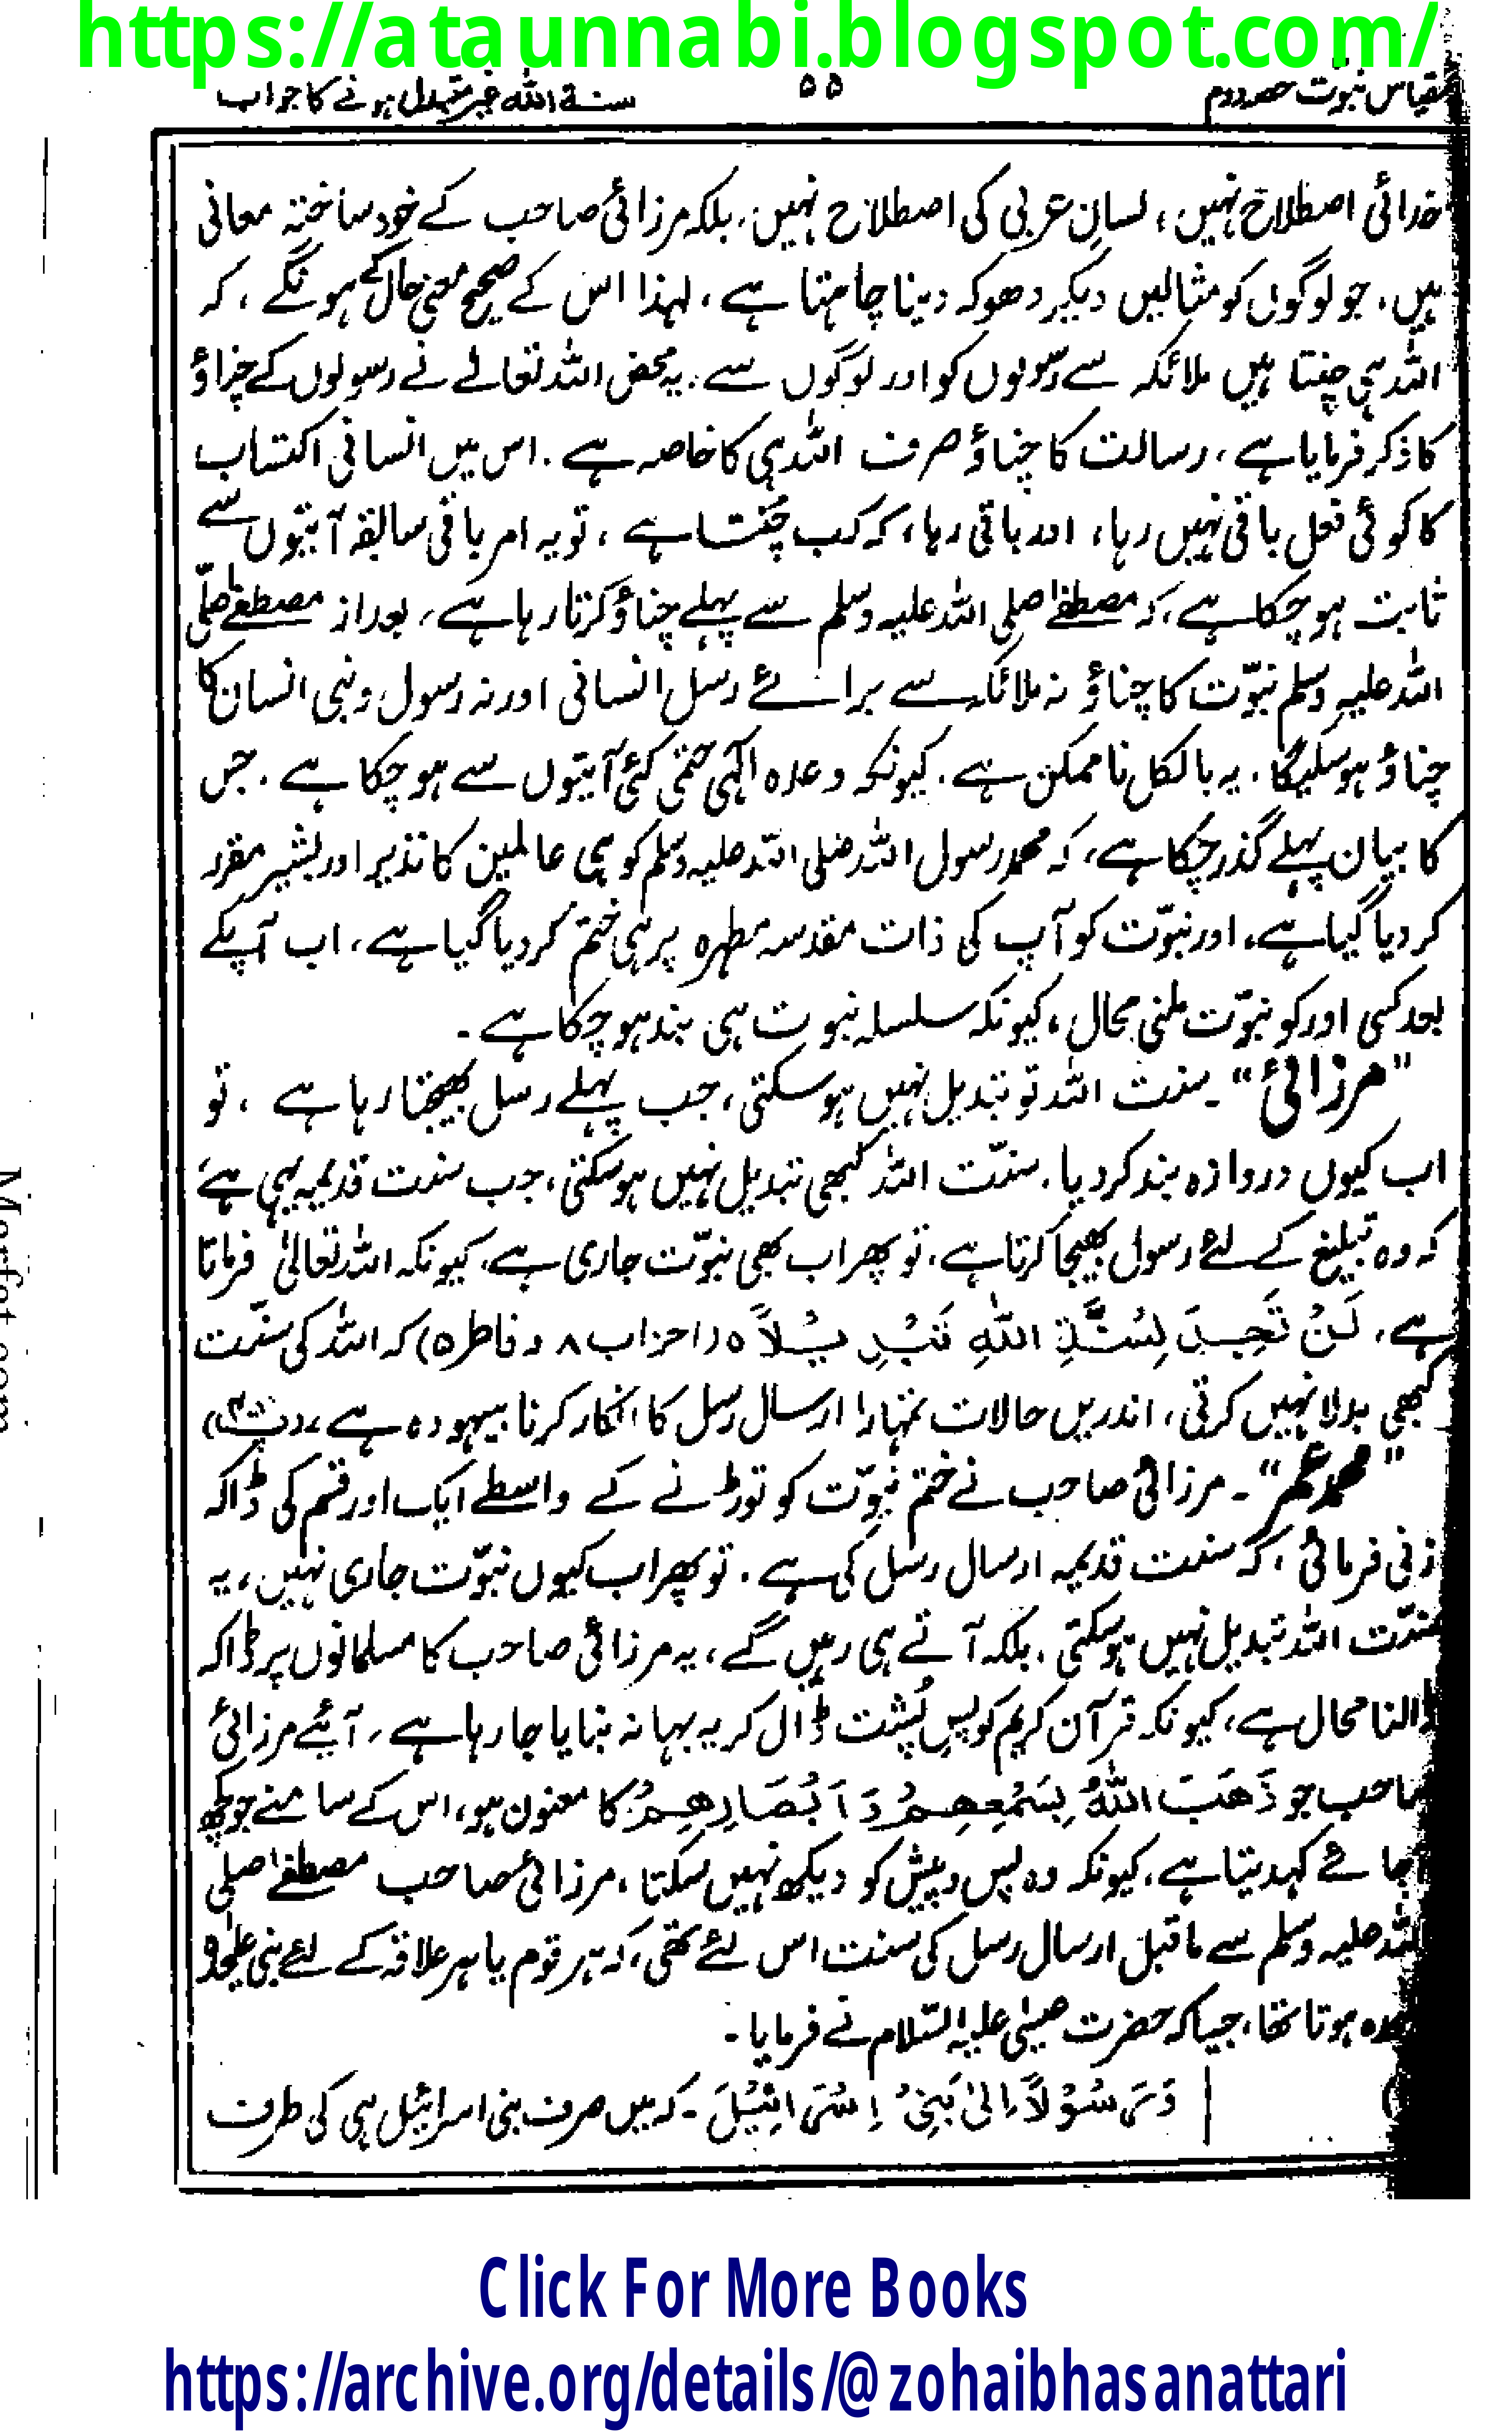 https://ataunnabi.blogspot.com/
مقیاس نبوّت حصہ دوم ۵۵ سنۃ اللہ غیر متبدل ہونے کا جواب
خدائی اصطلاح نہیں، لسانِ عربی کی اصطلاح نہیں، بلکہ مرزائی صاحب کے خود ساختہ معانی
ہیں، جو لوگوں کو مثالیں دیکر دھوکہ دینا چاہتا ہے، لہذا اس کے صحیح معنی حال کے ہونگے، کہ
اللہ ہی چنتا ہیں ملائکہ سے رسولوں کو اور لوگوں سے. یہ محض اللہ تعالےٰ نے رسولوں کے چناؤ
کا ذکر فرمایا ہے، رسالت کا چناؤ صرف اللہ ہی کا خاصہ ہے. اس میں انسانی اکتساب
کا کوئی فعل باقی نہیں رہا، اور باقی رہا، کہ کب چُنتا ہے، تو یہ امر باقی سابقہ آیتوں سے
ثابت ہو چکا ہے، کہ مصطفےٰ صلی اللہ علیہ وسلم سے پہلے چناؤ کرتا رہا ہے، بعد از مصطفےٰ صلّی
اللہ علیہ وسلم نبوّت کا چناؤ نہ ملائکہ سے برائے رسل انسانی اور نہ رسول و نبی انسان کا
چناؤ ہو سکیگا. یہ بالکل ناممکن ہے. کیونکہ وعدہ الٰہی حتمی کئی آیتوں سے ہو چکا ہے. جس
کا بیان پہلے گذر چکا ہے، کہ محمد رسول اللہ صلی اللہ علیہ وسلم کو ہی عالمین کا نذیر اور بشیر مقرر
کر دیا گیا ہے، اور نبوّت کو آپ کی ذات مقدسہ مطہرہ پر ہی ختم کر دیا گیا ہے، اب آپکے
بعد کسی اور کو نبوّت ملنی محال، کیونکہ سلسلہ نبوت ہی بند ہو چکا ہے۔
"مرزائی"۔ سنت اللہ تو تبدیل نہیں ہو سکتی، جب پہلے رسل بھیجتا رہا ہے، تو
اب کیوں دروازہ بند کر دیا. سنّت اللہ کبھی تبدیل نہیں ہو سکتی، جب سنت قدیمیہ یہی ہے
کہ وہ تبلیغ کے لئے رسول بھیجا کرتا ہے. تو پھر اب بھی نبوّت جاری ہے، کیونکہ اللہ تعالیٰ فرماتا
ہے. لَنْ تَجِدَ لِسُنَّةِ اللهِ تَبْدِيْلًا ہ (احزاب ۸ و فاطر ۵) کہ اللہ کی سنّت
کبھی بدلا نہیں کرتی، اندریں حالات تمہارا ارسال رسل کا انکار کرنا بیہودہ ہے،
"محمد عمر"۔ مرزائی صاحب نے ختم نبوّت کو توڑنے کے واسطے ایک اور قسم کی ڈاکہ
زنی فرمائی، کہ سنت قدیمیہ ارسال رسل کی ہے. تو پھر اب کیوں نبوّت جاری نہیں، یہ
سنّت اللہ تبدیل نہیں ہو سکتی. بلکہ آتے ہی رہیں گے، یہ مرزائی صاحب کا مسلمانوں پر ڈاکہ
ڈالنا محال ہے، کیونکہ قرآن کریم کو پسِ پُشت ڈال کر یہ بہانہ بنایا جا رہا ہے، آئیے مرزائی
صاحب جو ذَهَبَ اللهُ بِسَمْعِهِمْ وَاَبْصَارِهِمْ کا معنون ہو، اس کے سامنے جو کچھ
آجائے کہدیتا ہے، کیونکہ وہ پس و پیش کو دیکھ نہیں سکتا، مرزائی صاحب مصطفےٰ صلی
اللہ علیہ وسلم سے ماقبل ارسال رسل کی سنت اس لئے تھی، کہ ہر قوم یا ہر علاقہ کے لئے نبی علیٰحدہ
ہوتا تھا، جیسا کہ حضرت عیسٰی علیہ السّلام نے فرمایا۔
وَرَسُوْلًا اِلٰى بَنِيْ اِسْرَائِيْلَ۔ کہ میں صرف بنی اسرائیل ہی کی طرف
Click For More Books
https://archive.org/details/@zohaibhasanattari